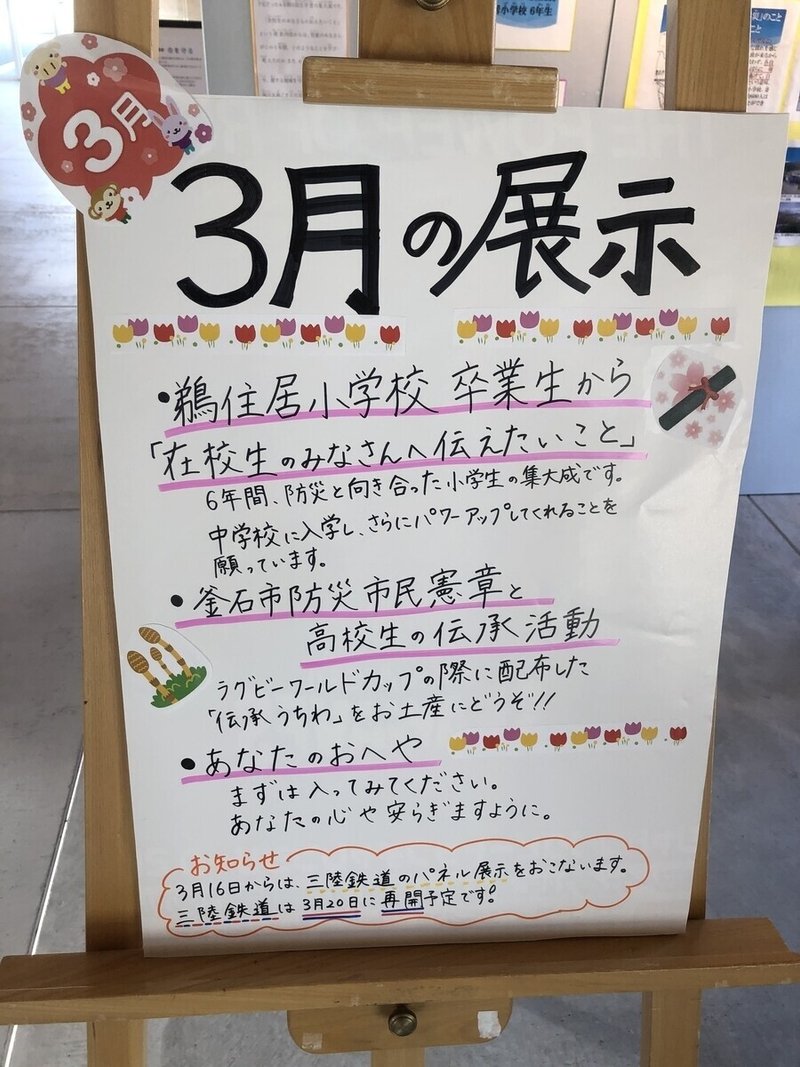 小学校 6年生
3月
3月の展示
・鵜住居小学校 卒業生から
「在校生のみなさんへ伝えたいこと」
6年間、防災と向き合った小学生の集大成です。
中学校に入学し、さらにパワーアップしてくれることを
願っています。
・釜石市防災市民憲章と
高校生の伝承活動
ラグビーワールドカップの際に配布した
「伝承うちわ」をお土産にどうぞ!!
・あなたのおへや
まずは入ってみてください。
あなたの心や安らぎますように。
お知らせ
3月16日からは、三陸鉄道のパネル展示をおこないます。
三陸鉄道は3月20日に再開予定です!